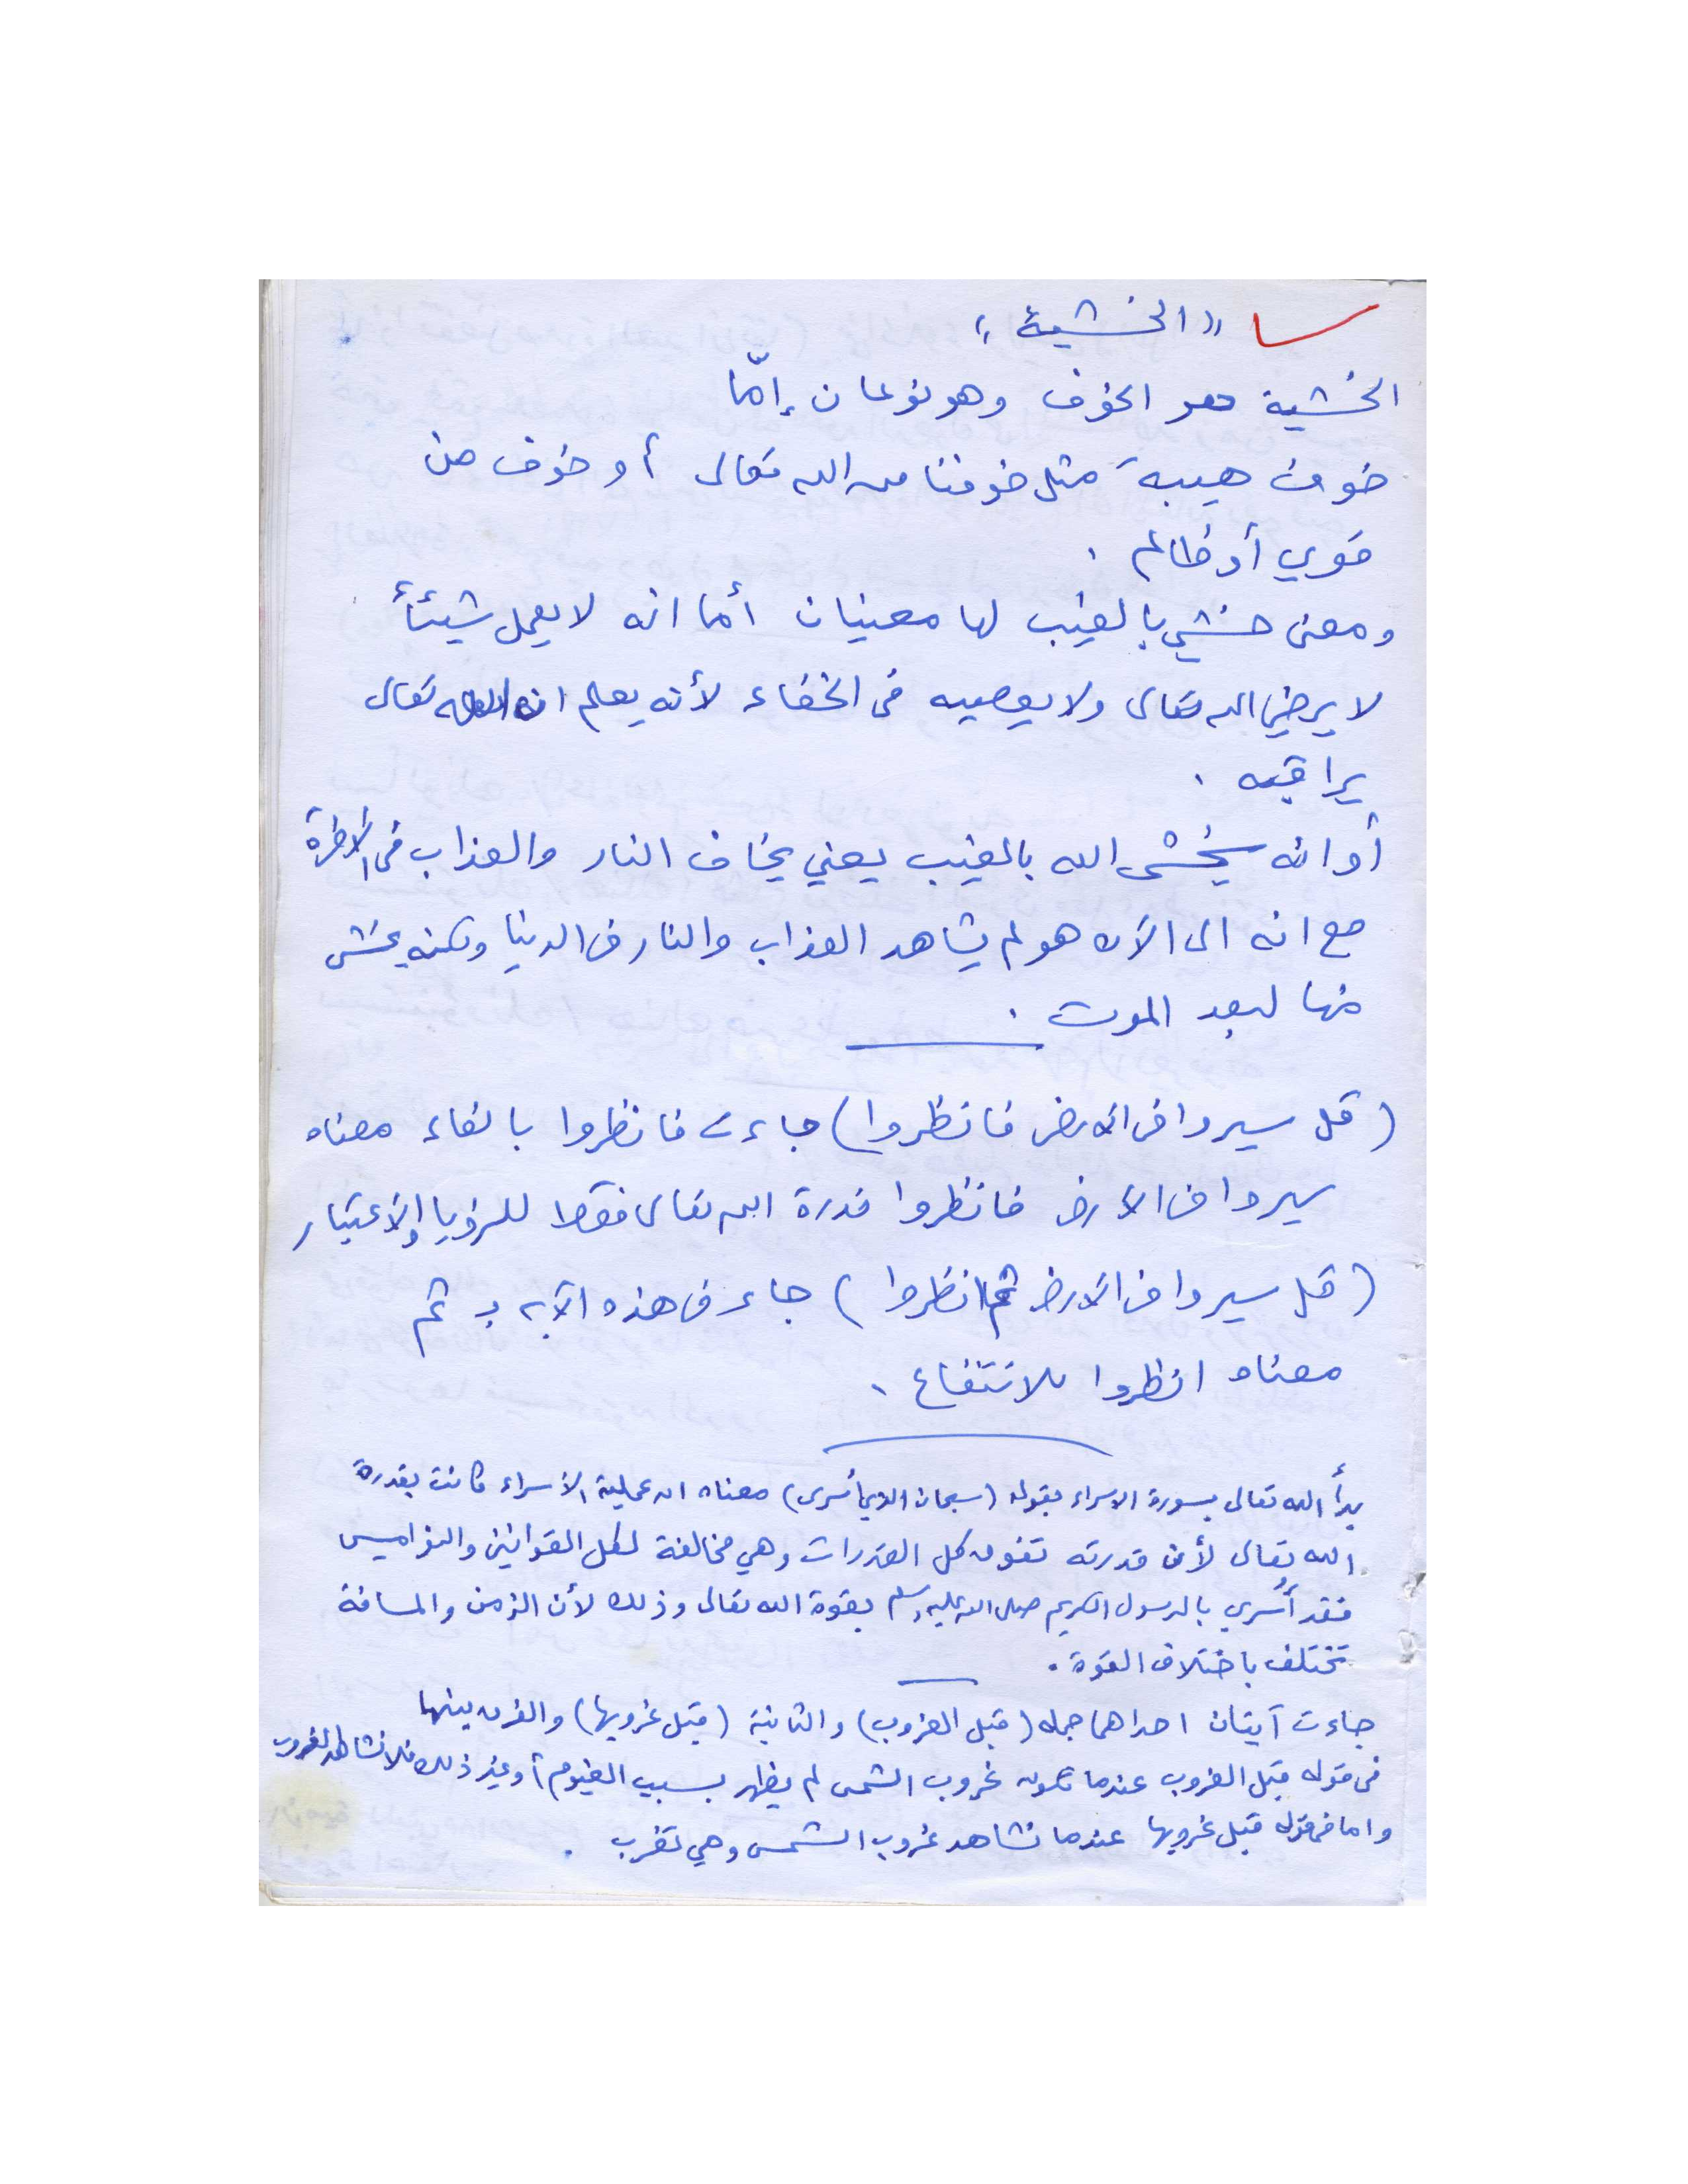 « الخشية »
الخشية هو الخوف وهو نوعان إمّا
خوف هيبة مثل خوفنا من الله تعالى أو خوف من
قوي أو ظالم .
ومعنى خشي بالغيب لها معنيان أما انه لا يعمل شيئأً
لا يرضي الله تعالى ولا يعصيه في الخفاء لأنه يعلم ان الله تعالى
يراقبه .
أو انه يخشى الله بالغيب يعني يخاف النار والعذاب في الآخرة
مع انه الى الآن هو لم يشاهد العذاب والنار في الدنيا ولكنه يخشى
منها لبعد الموت .
( قل سيروا في الارض فانظروا ) جاءت فانظروا بالفاء معناه
سيروا في الارض فانظروا قدرة الله تعالى فقط للرؤيا والاعتبار
( قل سيروا في الارض ثم انظروا ) جاء في هذه الآية بـ ثم
معناه انظروا للانتفاع .
بدأ الله تعالى بسورة الاسراء بقوله ( سبحان الذي أسرى ) معناه ان عملية الاسراء كانت بقدرة
الله تعالى لأن قدرته تفوق كل القدرات وهي مخالفة لكل القوانين والنواميس
فقد أُسري بالرسول الكريم صلى الله عليه وسلم بقوة الله تعالى وذلك لأن الزمن والمسافة
تختلف باختلاف القوة .
جاءت آيتان احداهما جملة ( قبل الغروب ) والثانية ( قبل غروبها ) والفرق بينهما
في قوله قبل الغروب عندما تكون غروب الشمس لم يظهر بسبب الغيوم أو غير ذلك فلا نشاهد الغروب
واما في قوله قبل غروبها عندما نشاهد غروب الشمس وهي تغرب .